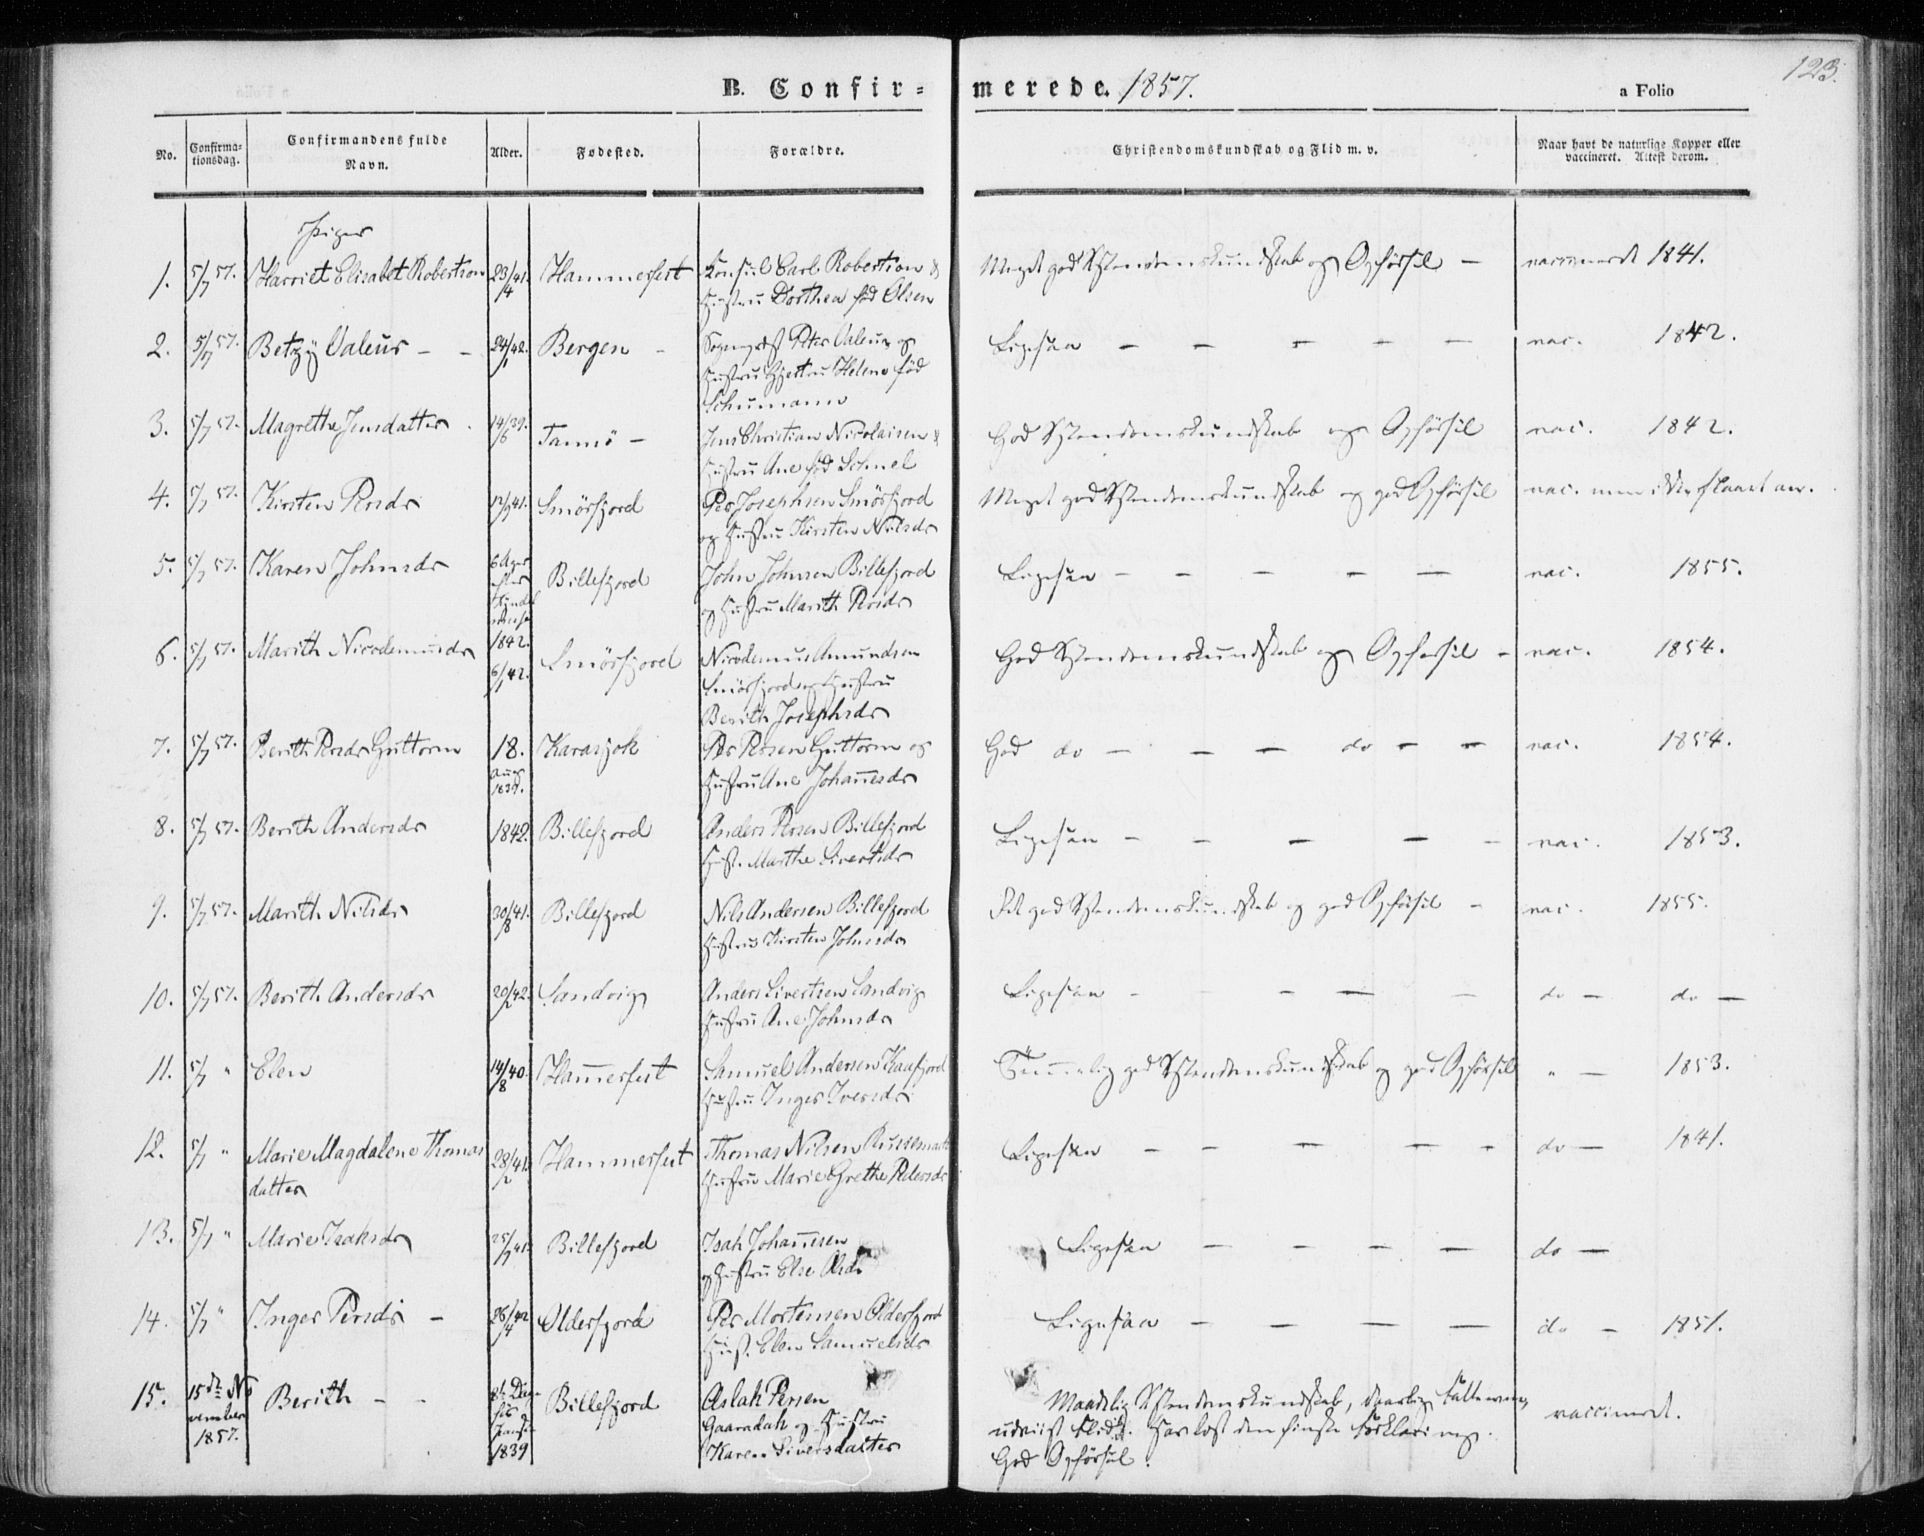 123.
B. Confirmerede. 1857.
a Folio
No. Confirmationsdag. Confirmandens fulde Navn. Alder. Fødested. Forældre. Christendomskundskab og Flid m. v. Naar havt de naturlige Kopper eller vaccineret. Attest derom.
Piger
1. 5/7 57. Harriet Elisabet Robertson 23/4 41. Hammerfest Konsul Carl Robertson & Meget god Xstendomskundskab og Opførsel — vaccineret 1841.
Hustru Dorthea fød Olsen
2. 5/7 57. Betzÿ Valeur - - 24/1 42. Bergen - Sogneprst Peter Valeur og Ligesaa — — — — — vac. 1842.
Hustru Helene fød
Schumann
3. 5/7 57. Magrethe Jensdatter 14/6 39. Tamsö - Jens Christian Nicolaisen & God Xstendomskundskab og Opførsel vac. 1842.
Hustru Ane fød
4. 5/7 57. Kirsten Persdr 41. Smörfjord Per Josephsen Smörfjord Meget god Xstendomskundskab og god Opførsel vac. men ikke slaaet an.
og Hustru Kirsten Nilsdr
5. 5/7 57. Karen Johnsdr 6 Uger Billefjord John Johnsen Billefjord Ligesaa — — — — — vac. 1855.
1842. og Hustru Marith Persdr
6. 5/7 57. Marith Nicodemusdr 6/1 42. Smörfjord Nicodemus Amundsen God Xstendomskundskab og Opførsel - vac. 1854.
Smörfjord og Hustru
Berith Josephsdr
7. 5/7 57. Berith Persdr Guttorm 18. Karasjok Per Persen Guttorm og God do — — — do — — vac. 1854.
1839. Hustru Ane Johannesdr
8. 5/7 57. Berith Andersdr 1842. Billefjord Anders Persen Billefjord Ligesaa — — — — — vac. 1853.
Hust. Marthe Sivertsdr
9. 5/7 57. Marith Nilsdr 30/8 41. Billefjord Nils Andersen Billefjord god Xstendomskundskab og god Opførsel - vac. 1855.
Hustru Kirsten Johnsdr
10. 5/7 57. Berith Andersdr 20/2 42. Sandvig Anders Sivertsen Sandvig Ligesaa - - — — do — do —
Hustru Ane Johnsdr
11. 5/7 " Elen 14/8 40. Hammerfest Samuel Andersen Temmelig god Xstendomskundskab og god Opførsel " — 1853.
Hustru Inger Iversdr
12. 5/7 " Marie Magdalene Thomas 28/2 41. Hammerfest Thomas Nilsen Ligesaa — — — — - do — 1841.
datter Hustru Marie Grethe Petersdr
13. 5/7 " Marie Isaksdr 41. Billefjord Isak Johannesen Ligesaa — — — — do —
og Hustru Else
14. 5/7 " Inger Persdr - 26/4 42 Olderfjord Per Mortensen Olderfjord Ligesaa — — — — do - 1851.
Hust. Elen Samuelsdr
15. 15de November 1857. Berith - - 1839 Billefjord Aslak Persen Maadelig Xstendomskundskab, daarlig Fatteevne, vaccineret.
og Hustru udviist Flid. Har læst den finske Forklaring.
Karen Siversdatter God Opførsel.